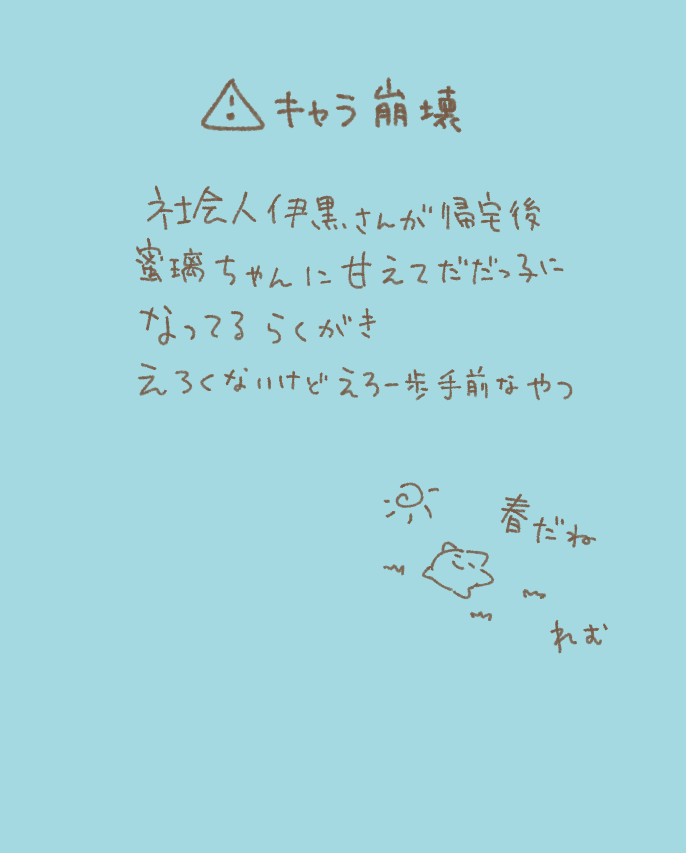 ⚠キャラ崩壊
社会人伊黒さんが帰宅後
蜜璃ちゃんに甘えてだだっ子に
なってるらくがき
えろくないけどえろ一歩手前なやつ
春だね
れむ